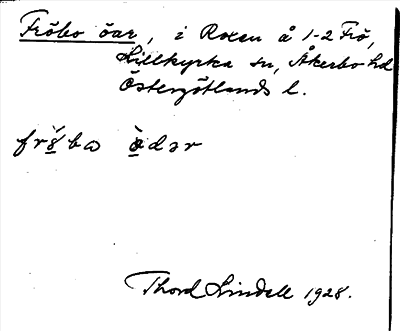 Fröbo öar, i Roxen å 1-2 Frö,
Lillkyrka sn, Åkerbo hd
Östergötlands l.
Thord Lindell 1928.